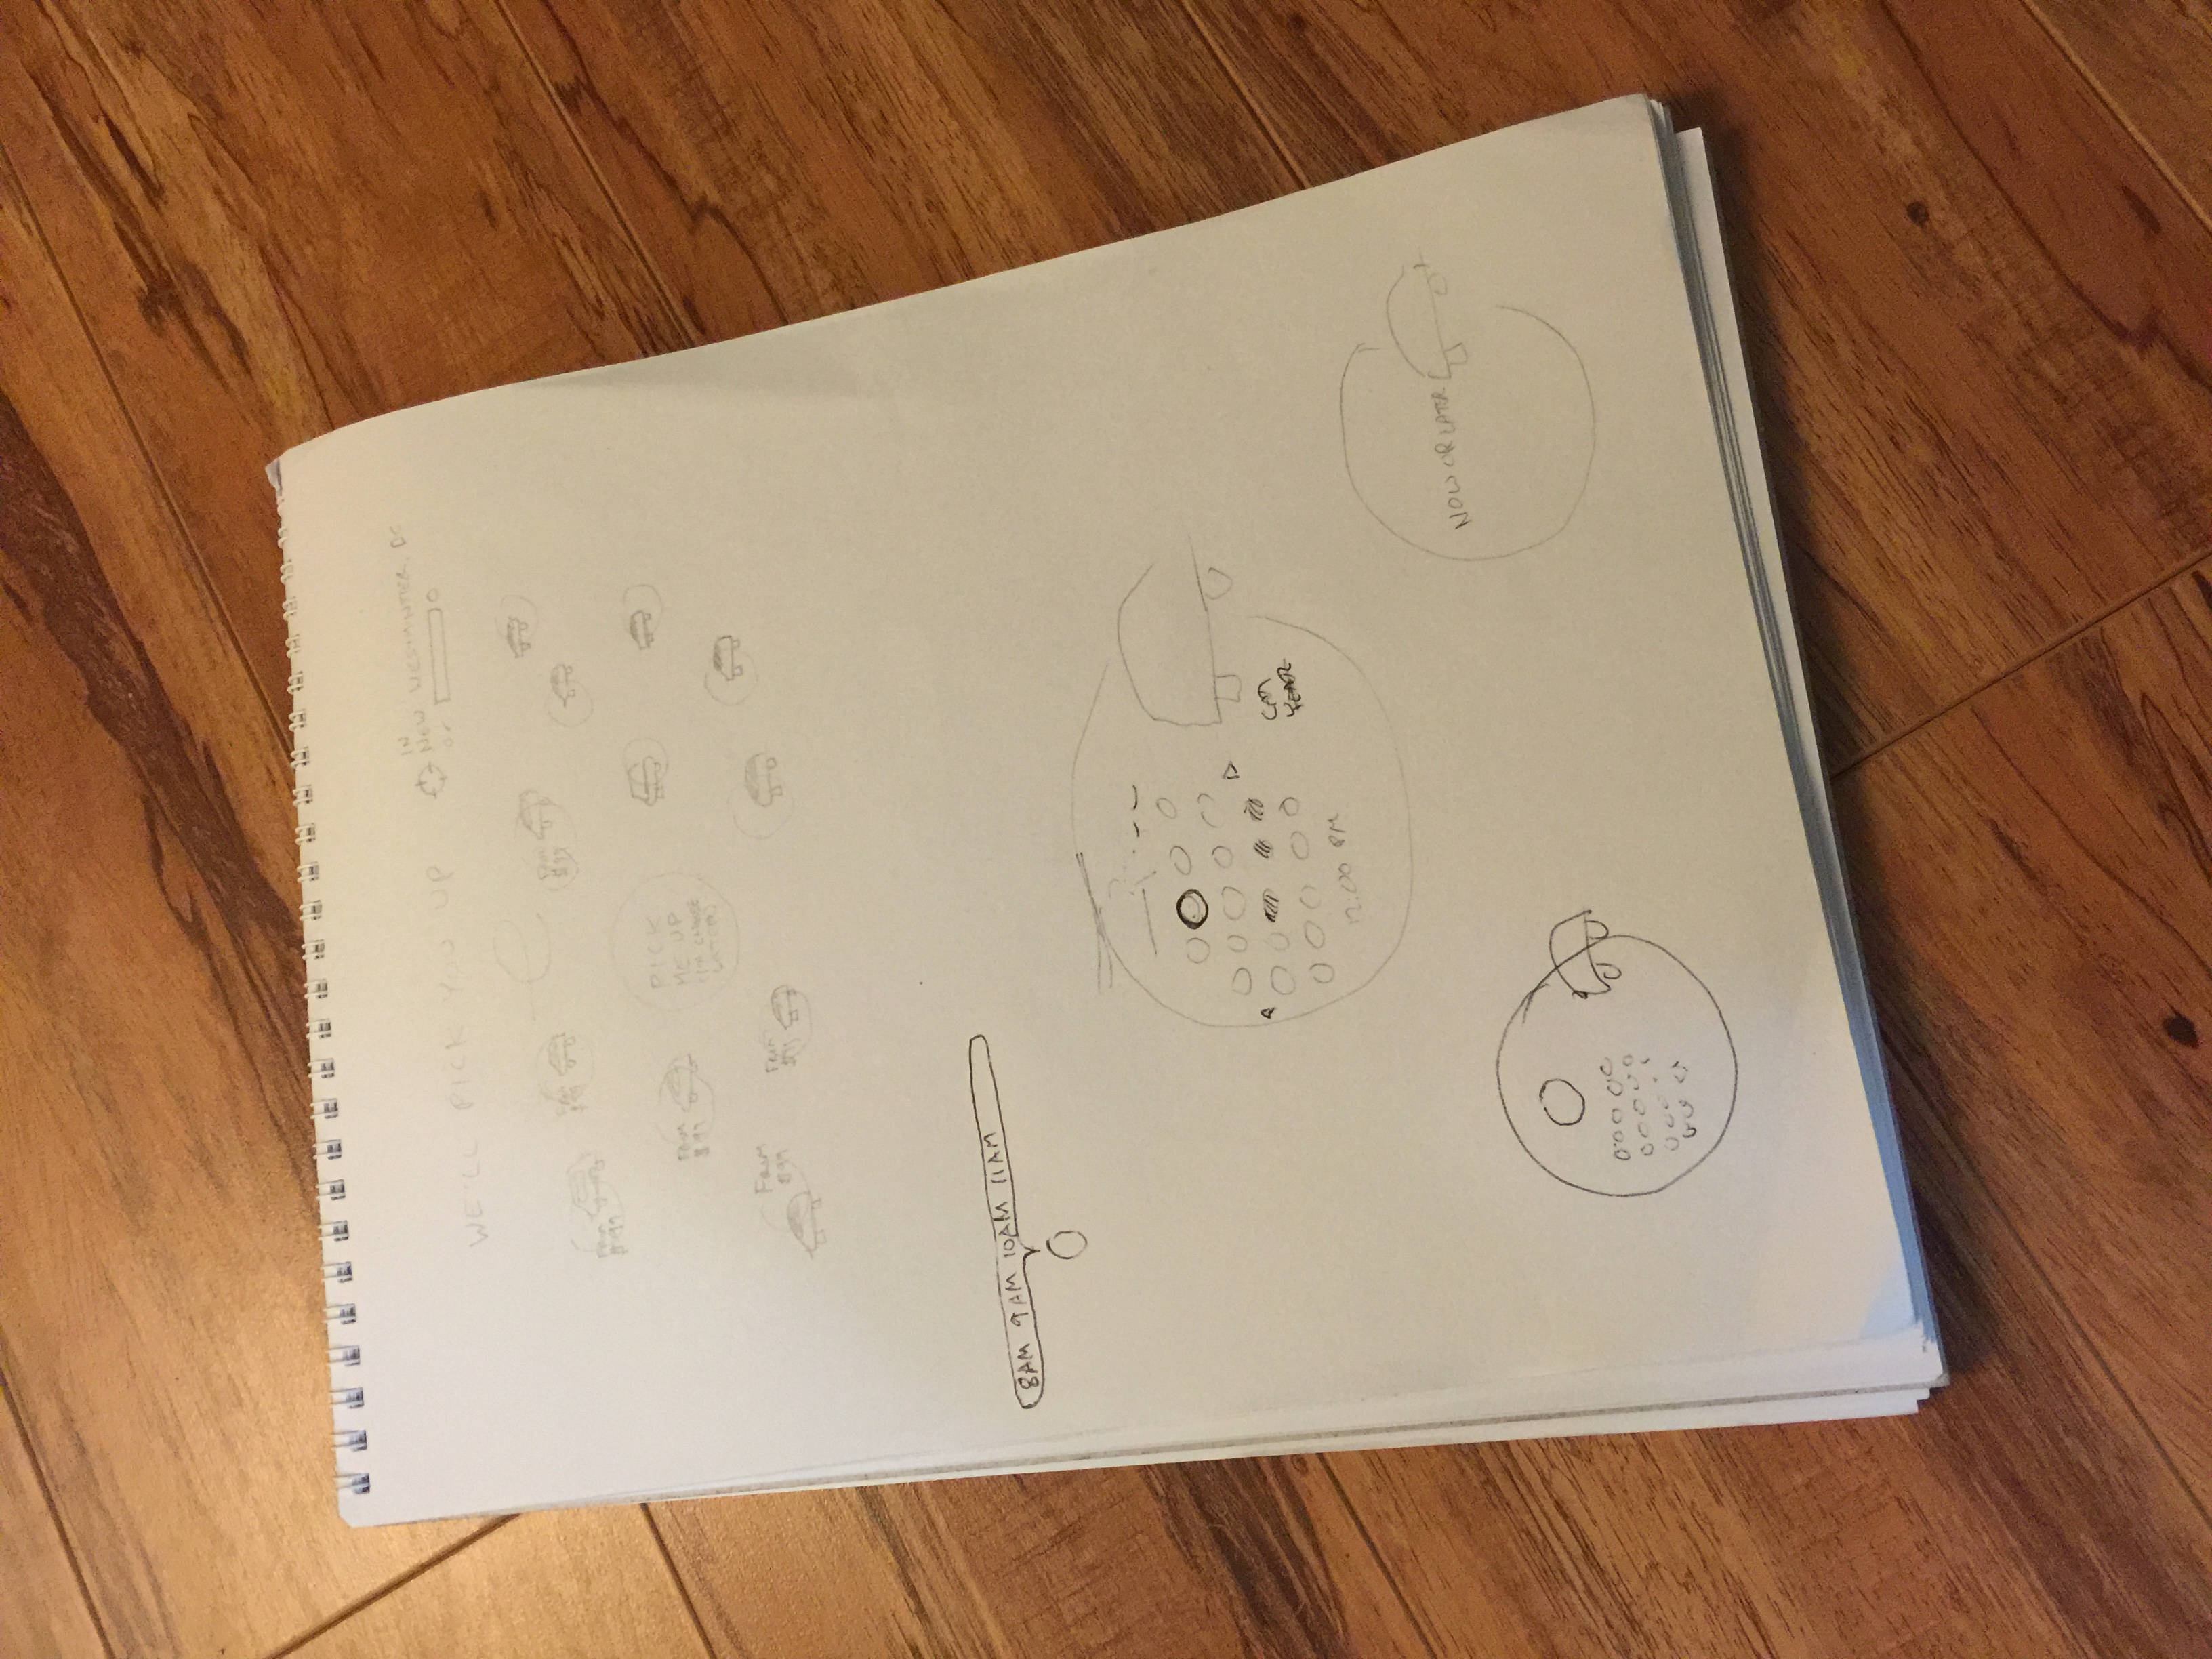 WE'LL PICK YOU UP
IN
NEW WESTMINTER, BC
or
FROM
$99
FROM
$99
FROM
$99
FROM
$99
PICK
ME UP
LATER)
FROM
$99
FROM
$99
8AM 9AM 10AM 11AM
12:00 PM
NOW OR LATER